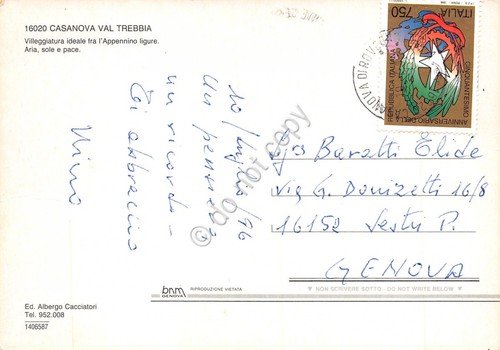 16020 CASANOVA VAL TREBBIA
Villeggiatura ideale fra l'Appennino ligure.
Aria, sole e pace.
ITALIA 750
CINQUANTESIMO
ANNIVERSARIO DELLA
REPUBBLICA ITALIANA
10/luglio/96
Un pensiero
un ricordo -
Ti abbraccio
Nino
Baratti Elide
via G. Donizetti 16/8
16152 Sestri P.
GENOVA
bnm
GENOVA
RIPRODUZIONE VIETATA
NON SCRIVERE SOTTO - DO NOT WRITE BELOW
Ed. Albergo Cacciatori
Tel. 952.008
1406587
© do not copy